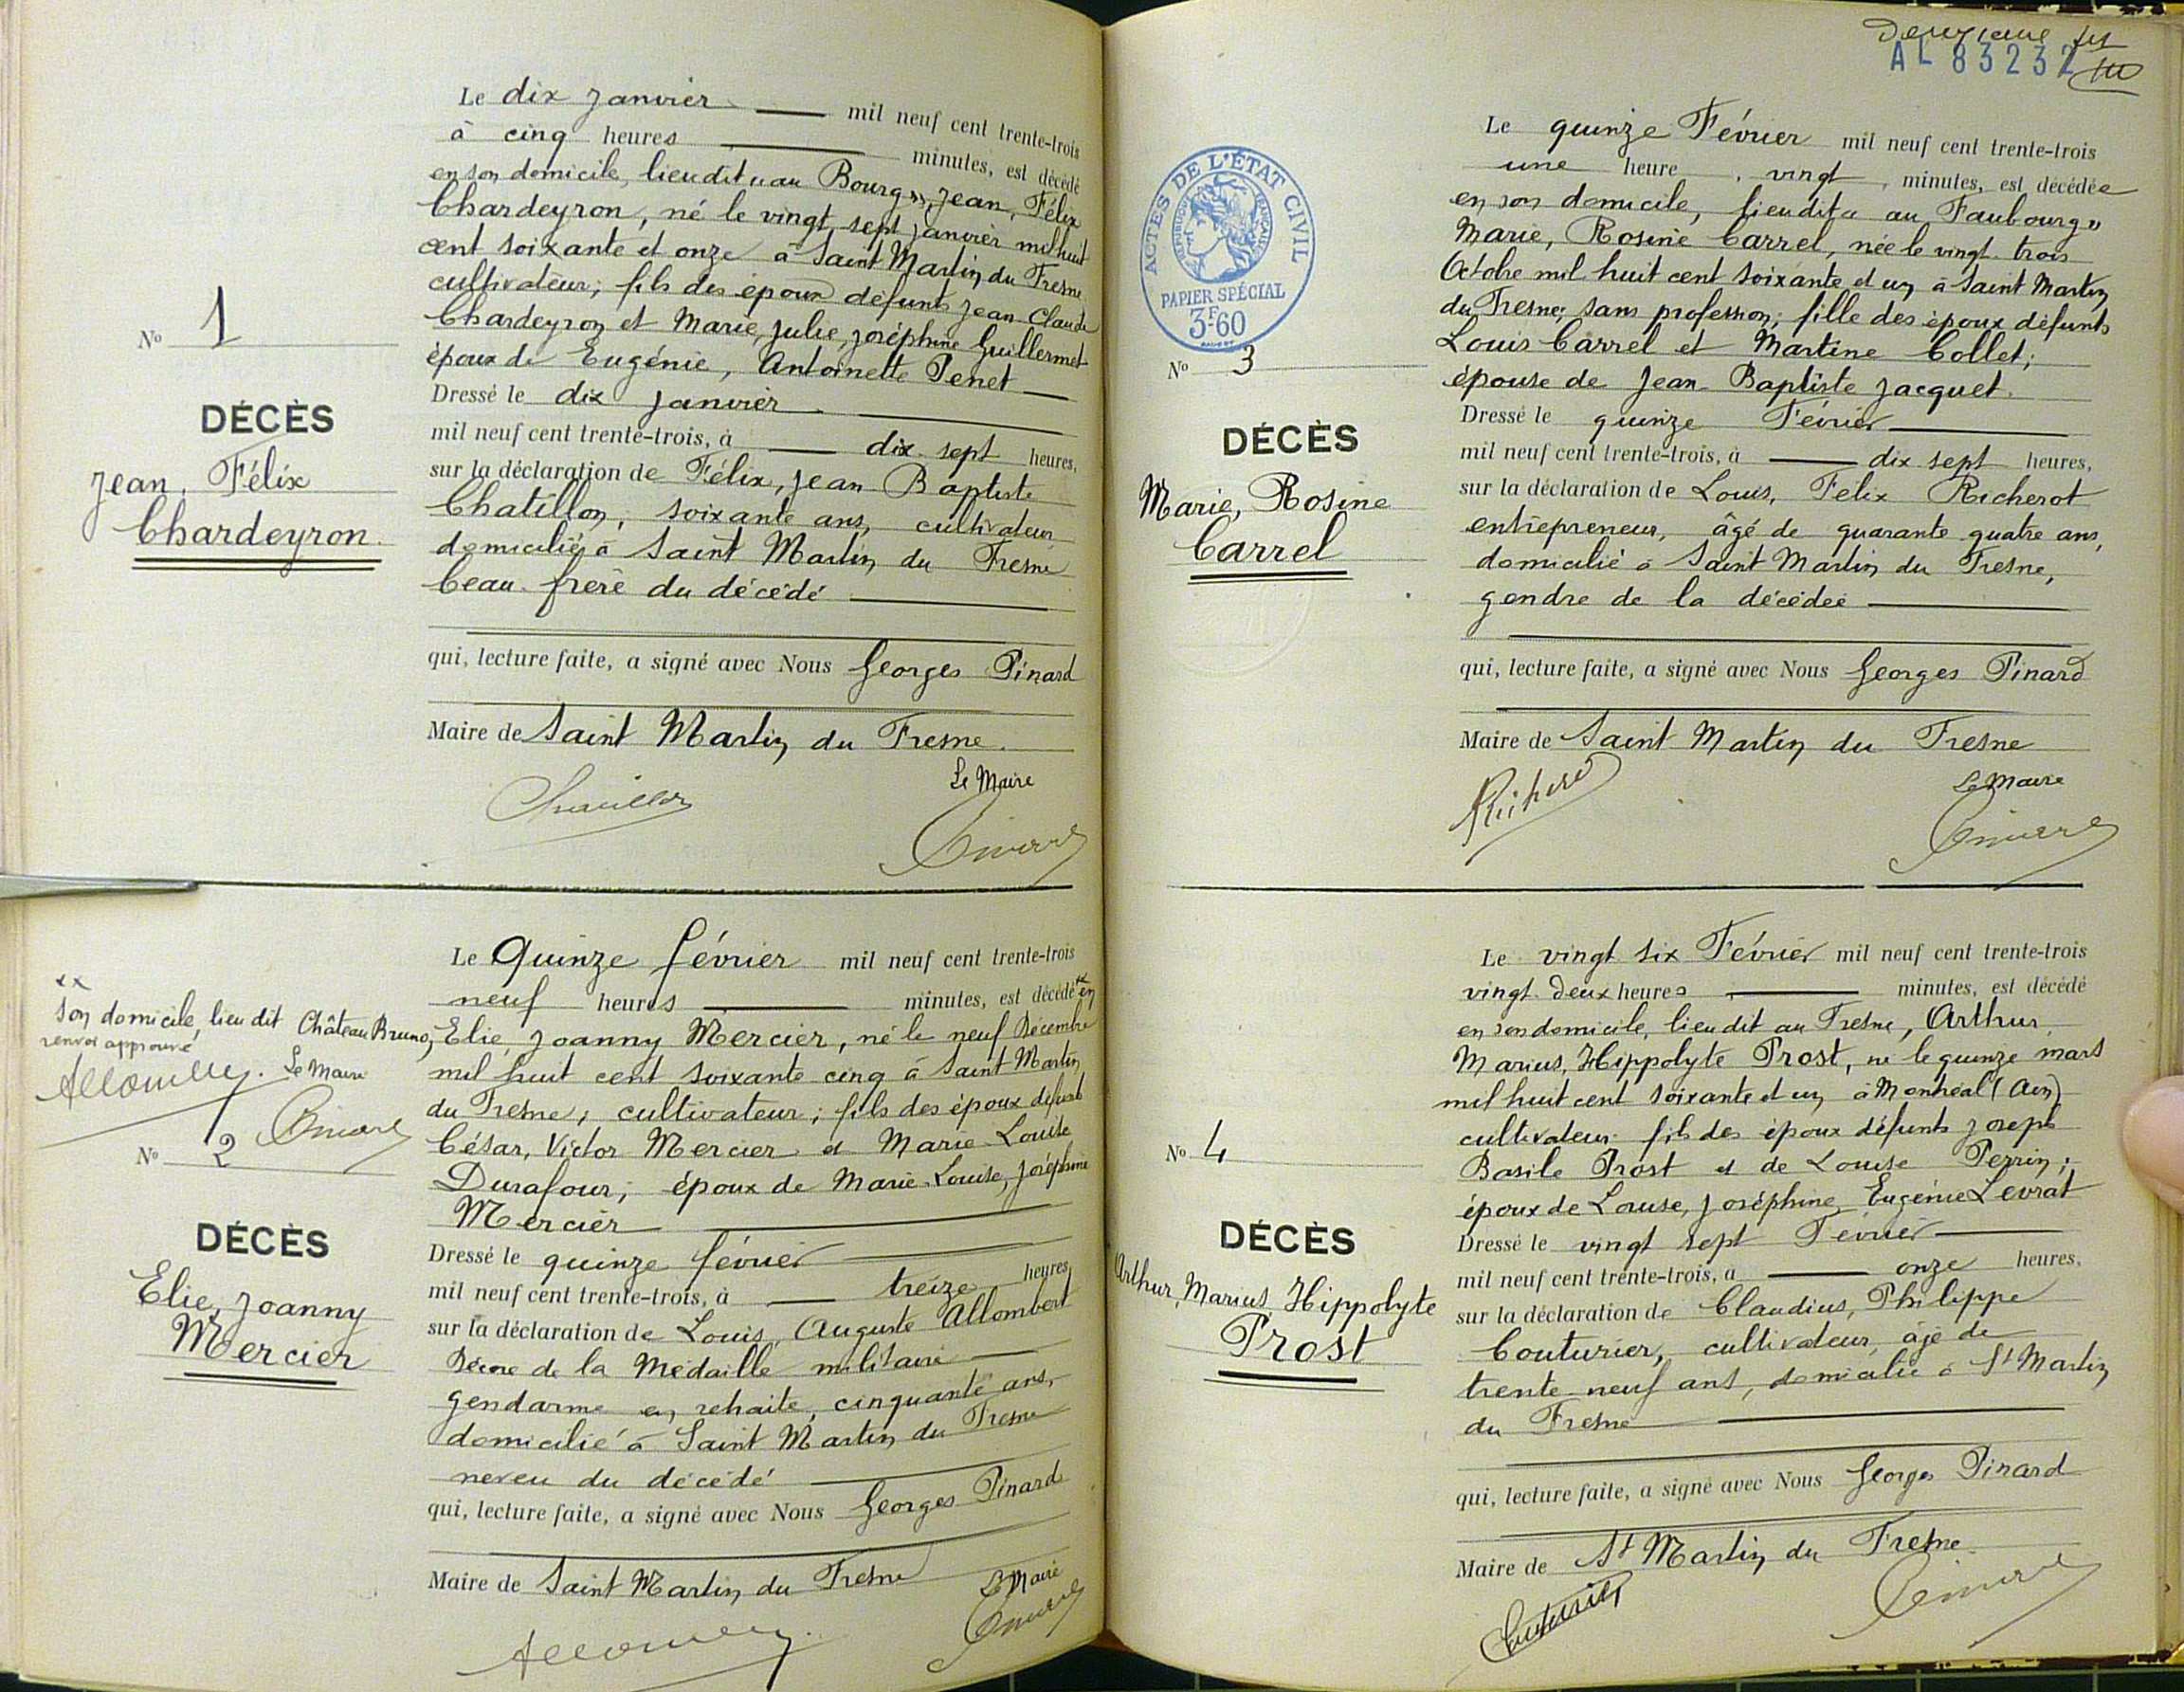 Le dix janvier mil neuf cent trente-trois
à cinq heures minutes, est décédé
en son domicile, lieudit "au Bourg", Jean, Félix
Chardeyron, né le vingt sept janvier mil huit
cent soixante et onze à Saint Martin du Fresne
cultivateur; fils des époux défunts Jean-Claude
Chardeyron et Marie, Julie, Joséphine Guillermet
époux de Eugénie, Antoinette Penet
Dressé le dix janvier
mil neuf cent trente-trois, à dix-sept heures,
sur la déclaration de Félix, Jean Baptiste
Chatillon, soixante ans, cultivateur
domicilié à Saint Martin du Fresne
beau-frère du décédé
qui, lecture faite, a signé avec Nous Georges Pinard
Maire de Saint Martin du Fresne.
Le Maire
No 1
DÉCÈS
Jean, Félix
Chardeyron.
Le Quinze février mil neuf cent trente-trois
neuf heures minutes, est décédé xx en
Elie, Joanny Mercier, né le neuf Décembre
mil huit cent soixante cinq à Saint Martin
du Fresne; cultivateur; fils des époux défunts
César, Victor Mercier et Marie-Louise
Durafour; époux de Marie-Louise, Joséphine
Mercier
Dressé le quinze février
mil neuf cent trente-trois, à treize heures,
sur la déclaration de Louis, Auguste Allombert
Décoré de la Médaille militaire
gendarme en retraite, cinquante ans,
domicilié à Saint Martin du Fresne
neveu du décédé
qui, lecture faite, a signé avec Nous Georges Pinard
Maire de Saint Martin du Fresne
Le Maire
xx
son domicile, lieu dit Château Bruno,
renvoi approuvé
Le Maire
No 2
DÉCÈS
Elie, Joanny
Mercier
Deuxième
AL 83232
ACTES DE L'ÉTAT CIVIL
RÉPUBLIQUE FRANÇAISE
PAPIER SPÉCIAL
3F60
Le quinze Février mil neuf cent trente-trois
une heure, vingt, minutes, est décédée
en son domicile, lieudit "au Faubourg"
Marie, Rosine Carrel, née le vingt-trois
Octobre mil huit cent soixante et un à Saint Martin
du Fresne; sans profession; fille des époux défunts
Louis Carrel et Martine Collet;
épouse de Jean-Baptiste Jacquet.
Dressé le quinze Février
mil neuf cent trente-trois, à dix sept heures,
sur la déclaration de Louis, Félix Richerot
entrepreneur, âgé de quarante quatre ans,
domicilié à Saint Martin du Fresne,
gendre de la décédée
qui, lecture faite, a signé avec Nous Georges Pinard
Maire de Saint Martin du Fresne
Le Maire
No 3
DÉCÈS
Marie, Rosine
Carrel
Le vingt six Février mil neuf cent trente-trois
vingt-deux heures minutes, est décédé
en son domicile, lieu dit au Fresne, Arthur,
Marius, Hippolyte Prost, né le quinze mars
mil huit cent soixante et un à Montréal (Ain)
cultivateur fils des époux défunts Joseph
Basile Prost et de Louise Perrin;
époux de Louise, Joséphine, Eugénie Levrat
Dressé le vingt sept Février
mil neuf cent trente-trois, à onze heures,
sur la déclaration de Claudius, Philippe
Couturier, cultivateur, âgé de
trente-neuf ans, domicilié à St Martin
du Fresne
qui, lecture faite, a signé avec Nous Georges Pinard
Maire de St Martin du Fresne.
No 4
DÉCÈS
Arthur, Marius, Hippolyte
Prost